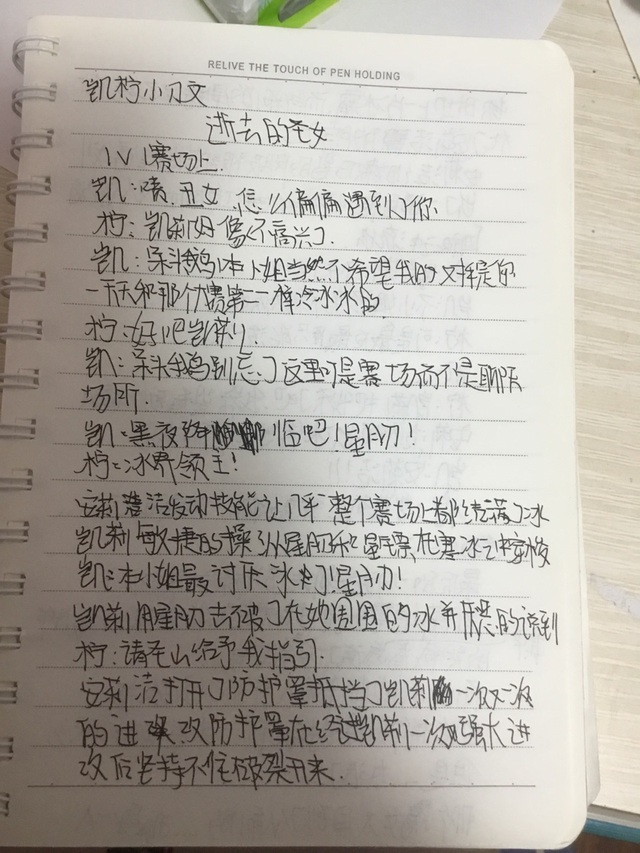 RELIVE THE TOUCH OF PEN HOLDING
凯柠小刀文
逝去的圣女
1V1赛场上.
凯:啧,丑女,怎么偏偏遇到了你.
柠:凯莉好像不高兴了.
凯:呆头鹅,本小姐当然不希望我的对手是你
一天和那个大赛第一一样冷冰冰的.
柠:好吧凯莉.
凯:呆头鹅别忘了这里可是赛场而不是聊天
场所.
凯:黑夜降临吧!星月刃!
柠:冰界领主!
安莉洁发动技能让几乎整个赛场上都结满了冰
凯莉敏捷的操纵星月刃和星镖在寒冰中穿梭
凯:本小姐最讨厌冰了!星月刃!
凯莉用星月刃击破了在她周围的冰并厌恶的说到
柠:请圣山给予我指引.
安莉洁打开了防护罩抵挡了凯莉一次又一次
的进攻防护罩在经过凯莉一次强大进
攻后坚持不住破裂开来.